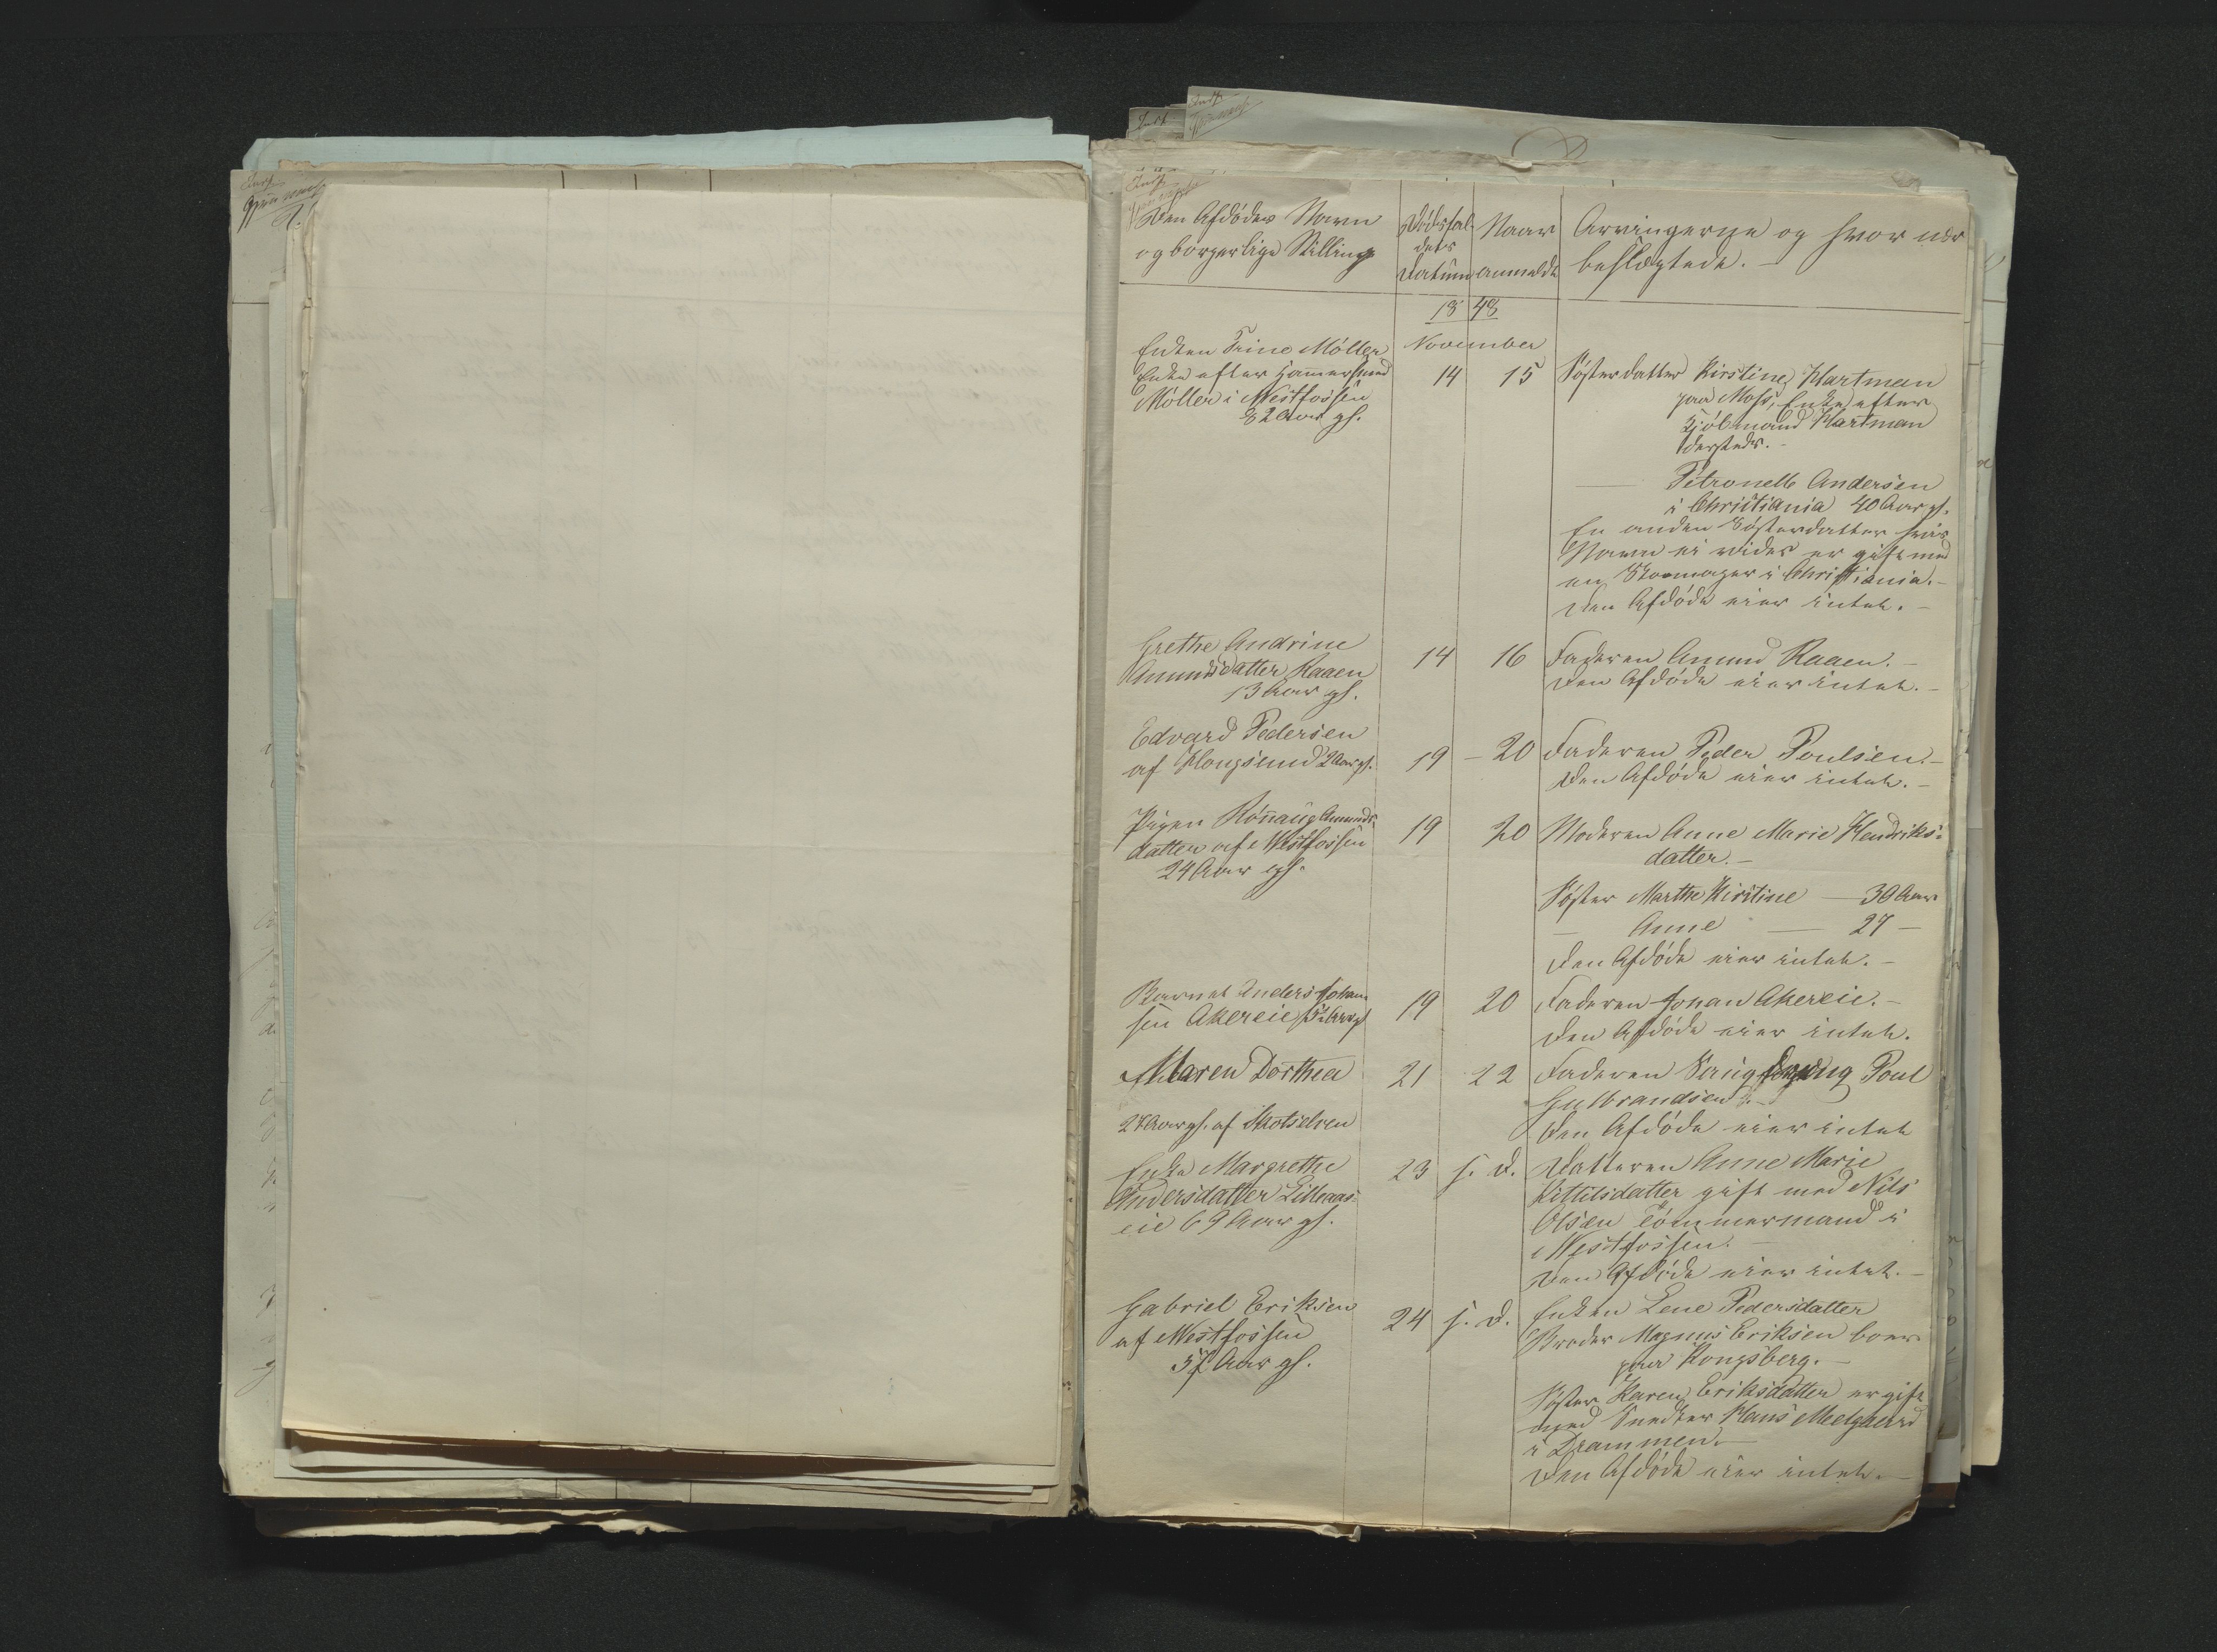 Den Afdödes Navn
og borgerlige Stilling
Dödsfal-
dets
Datum
Naar
anmeldt
Arvingerne og hvor nær
beslægtede. –
1848
November
Enken Trine Möller
Enke efter
Möller i Westfossen
82 Aar gl.
14 15
Søsterdatter Kirstine Hartman
paa Moss, Enke efter
Kjöbmand Hartman
dersteds. –
— Petronelle Andersen
i Christiania 40 Aar gl.
En anden Søsterdatter hvis
Navn ei vides er gift med
en Skomager i Christiania. –
Den Afdöde eier intet. –
Grethe Andrine
Amundsdatter Raaen
13 Aar gl.
14 16
Faderen Amund Raaen. –
Den Afdöde eier intet. –
Edvard Pedersen
af Hougsund 2 Aar gl.
19 – 20
Faderen Peder Poulsen. –
Den Afdöde eier intet. –
Pigen Rönnaug Amunds-
datter af Westfossen
24 Aar gl.
19 20
Moderen Anne Marie Hendriks-
datter. –
Søster Marthe Kirstine — 30 Aar
— Anne — 27 –
Den Afdöde eier intet. –
Barnet Anders Johan-
sen Akereie Aar gl
19 20
Faderen Johan Akereie. –
Den Afdöde eier intet.
Maren Dorthea
27 Aar gl. af Skotselven
21 22
Faderen Poul
Gulbrandsen. –
Den Afdöde eier intet
Enke Margrethe
Andersdatter Lilleaas-
eie 69 Aar gl.
23 s. D.
Datteren Anne Marie
Kittilsdatter gift med Nils
Olsen Tömmermand i
Westfossen. –
Den Afdöde eier intet. –
Gabriel Eriksen
af Westfossen
57 Aar gl.
24 s. D.
Enken Lene Pedersdatter
Broder Magnus Eriksen boer
paa Kongsberg. –
Søster Karen Eriksdatter er gift
med Snedker Hans Melgaard
i Drammen. –
Den Afdöde eier intet. –